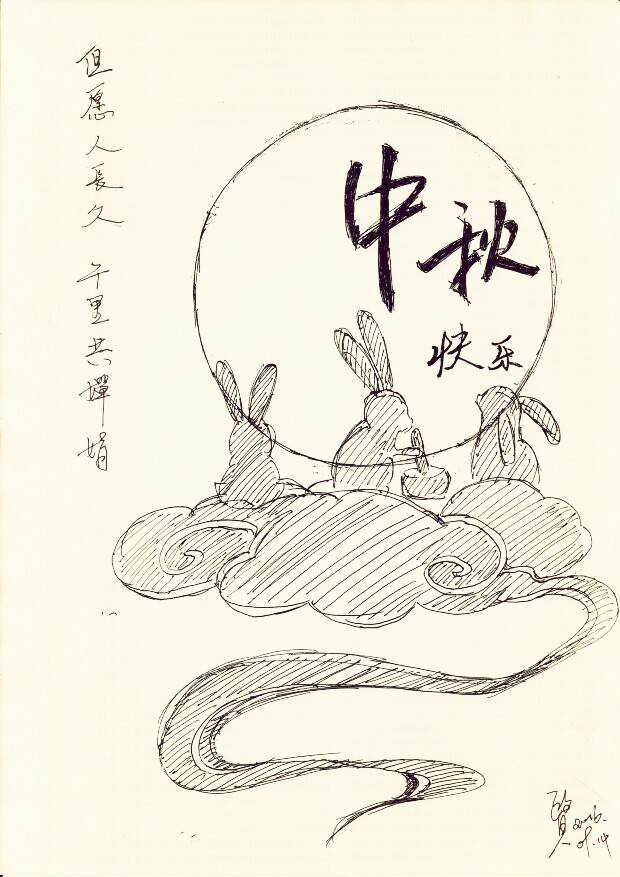 但愿人長久 千里共嬋娟
中秋
快乐
2016.
09.14